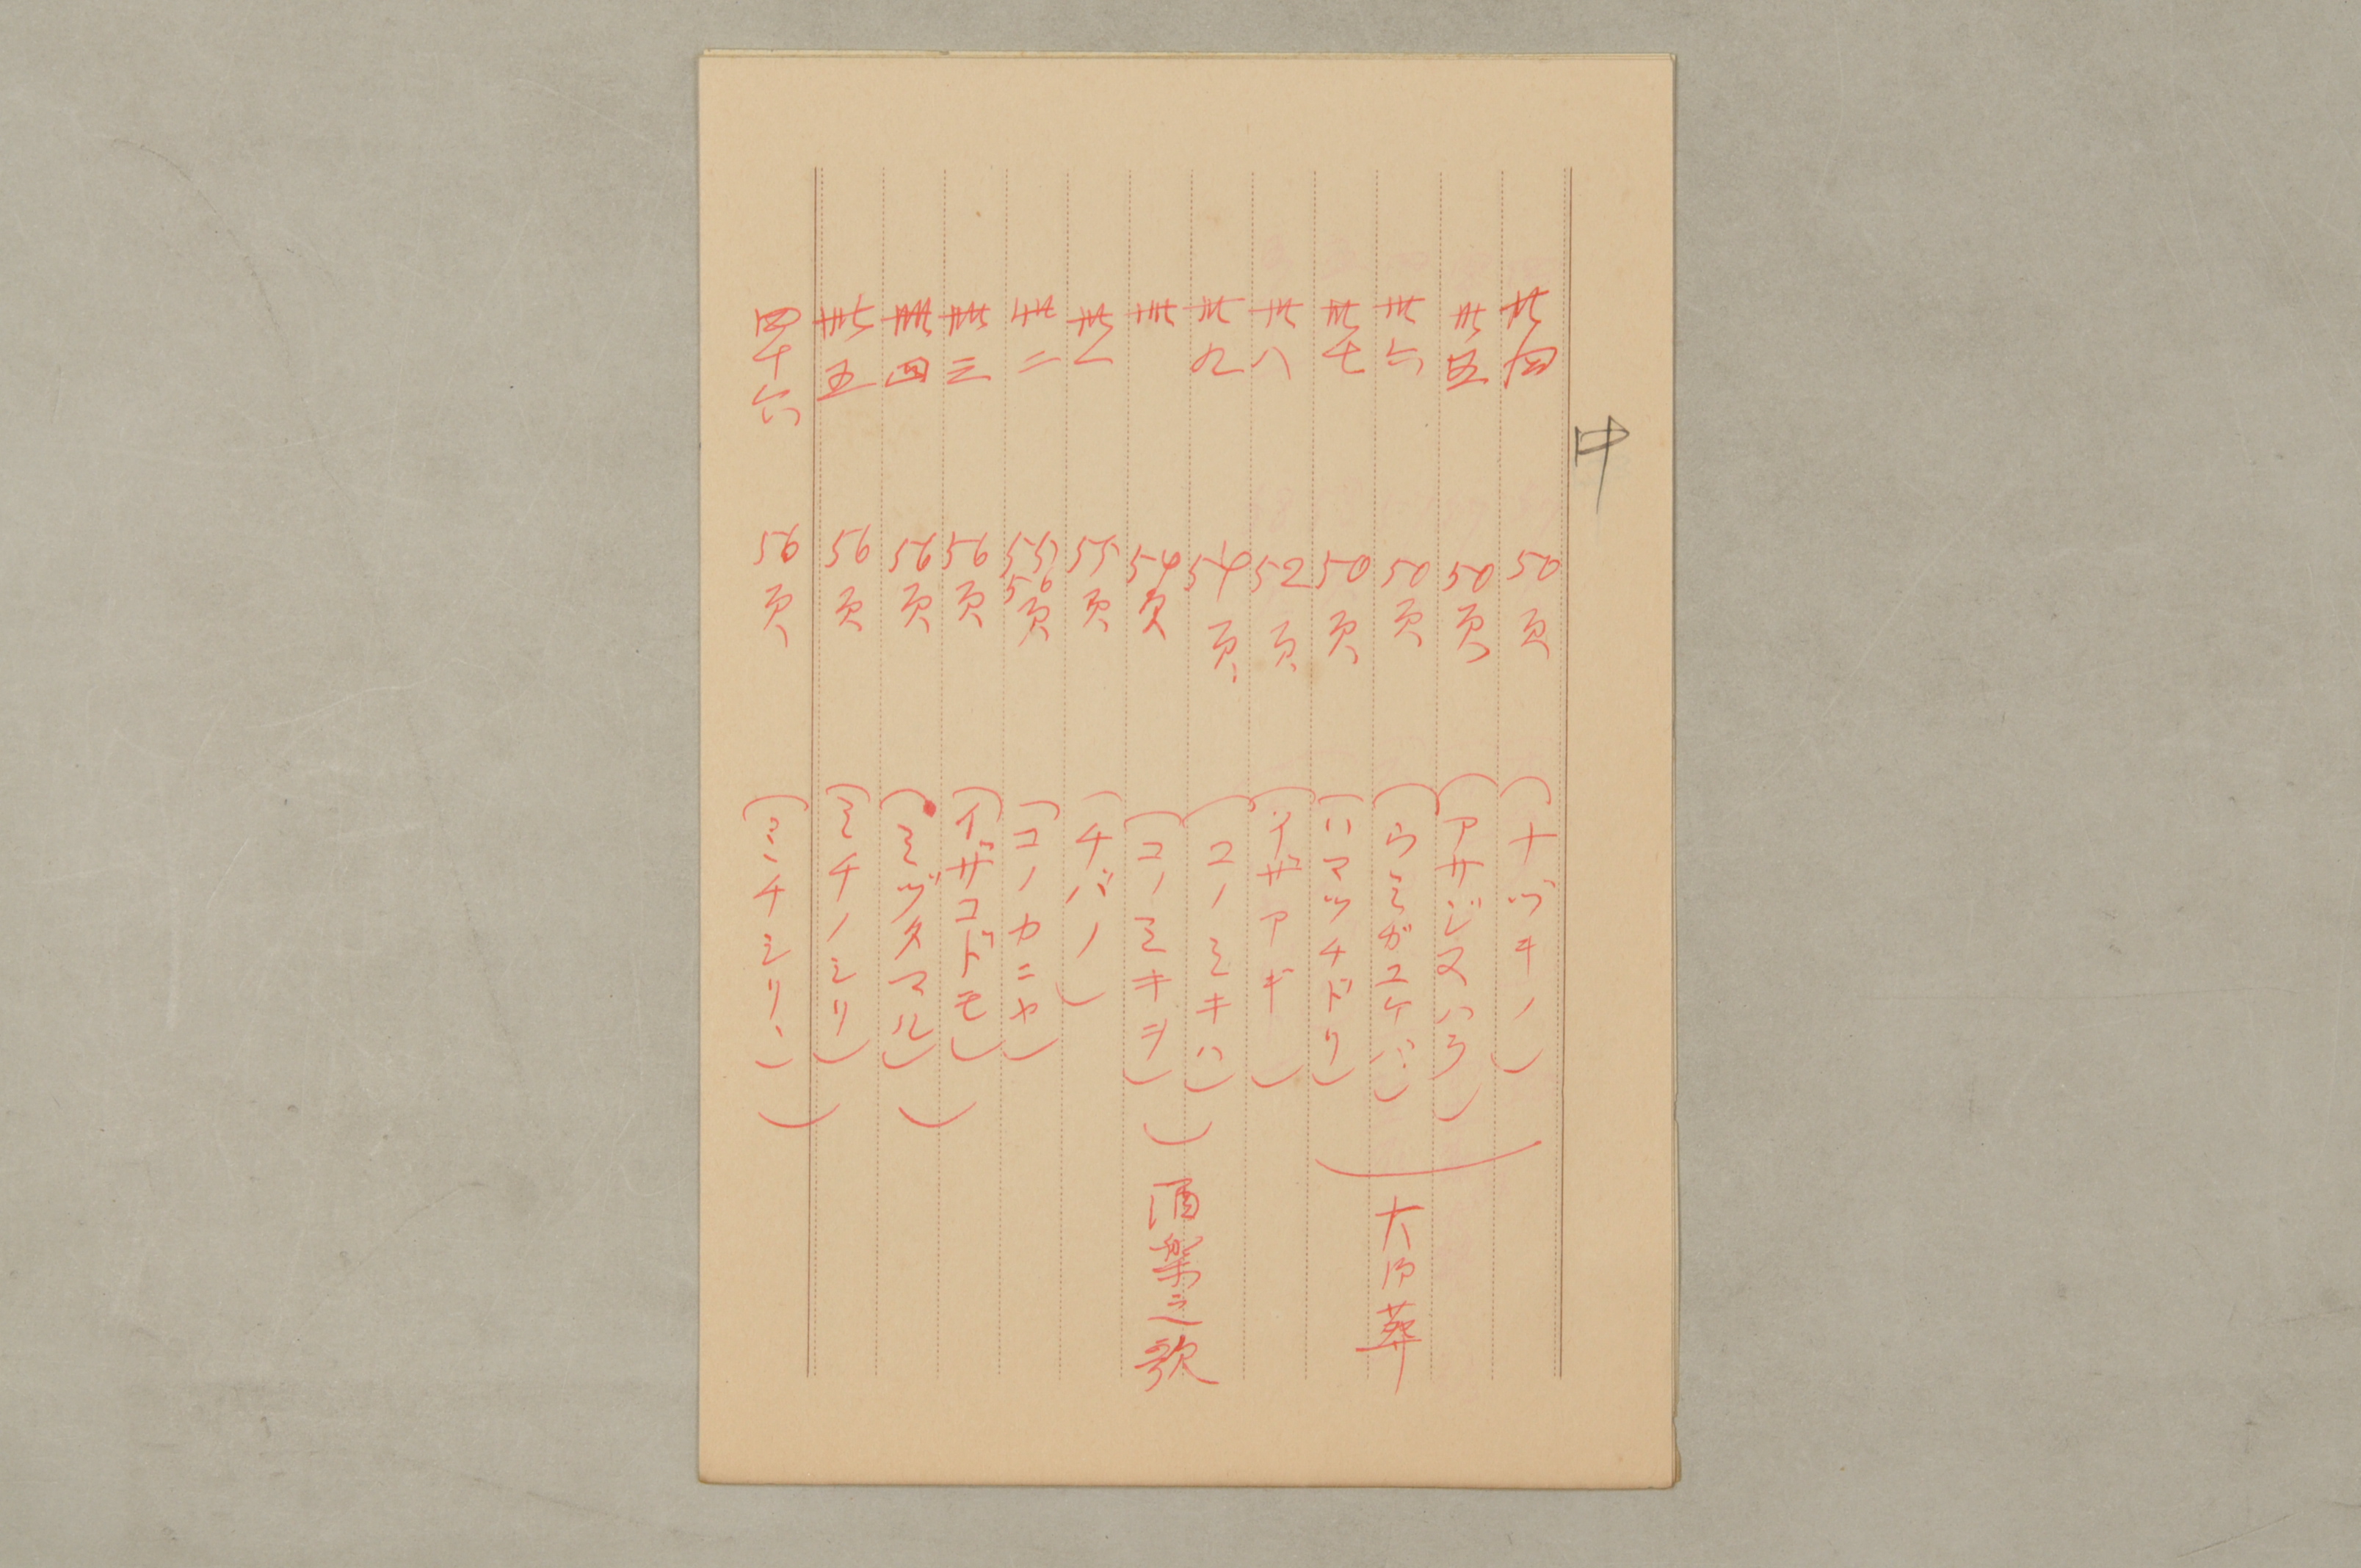 中
卅四 50頁 (ナヅキノ)
卅五 50頁 (アサジヌハラ)
卅六 50頁 (ウミガユケバ)
卅七 50頁 (ハマツチドリ)
大御葬
卅八 52頁 (イザアギ)
卅九 54頁 (コノミキハ)
卌 54頁 (コノミキヲ)
酒楽之歌
卌一 55頁 (チバノ)
卌二 55 56頁 (コノカニヤ)
卌三 56頁 (イザコドモ)
卌四 56頁 (ミヅタマル)
卌五 56頁 (ミチノシリ)
四十六 56頁 (ミチシリ、)